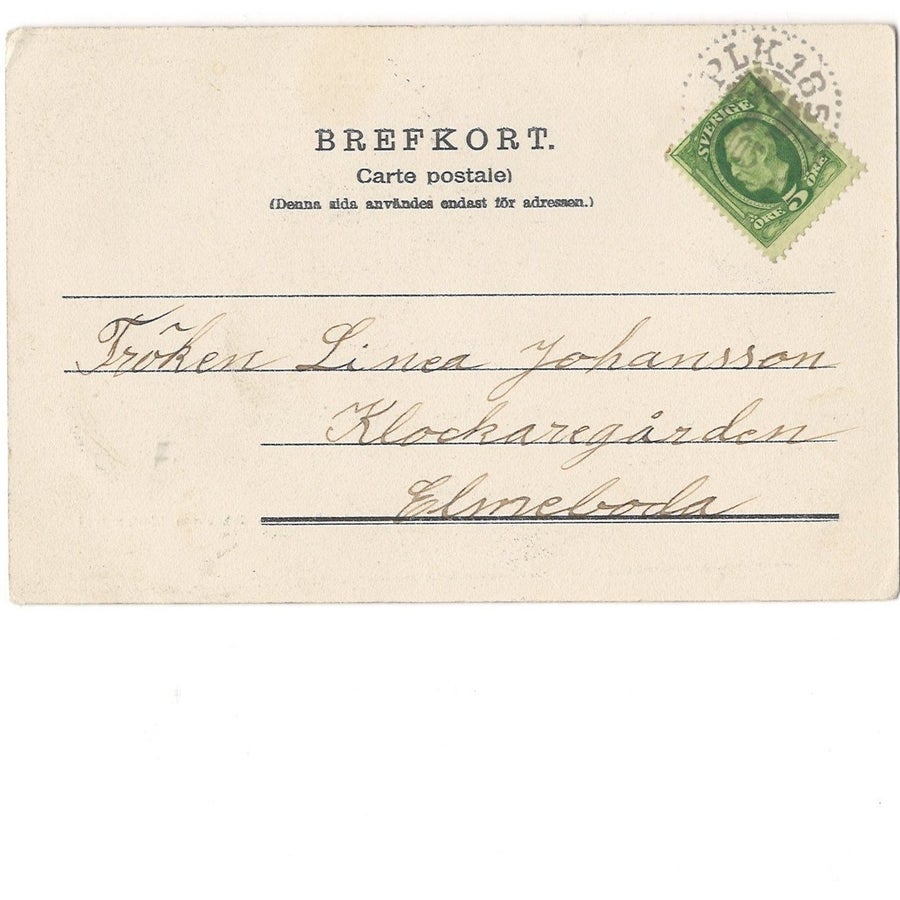 PLK. 165
BREFKORT.
Carte postale)
(Denna sida användes endast för adressen.)
SVERIGE
5
ÖRE ÖRE
Fröken Linea Johansson
Klockaregården
Elmeboda